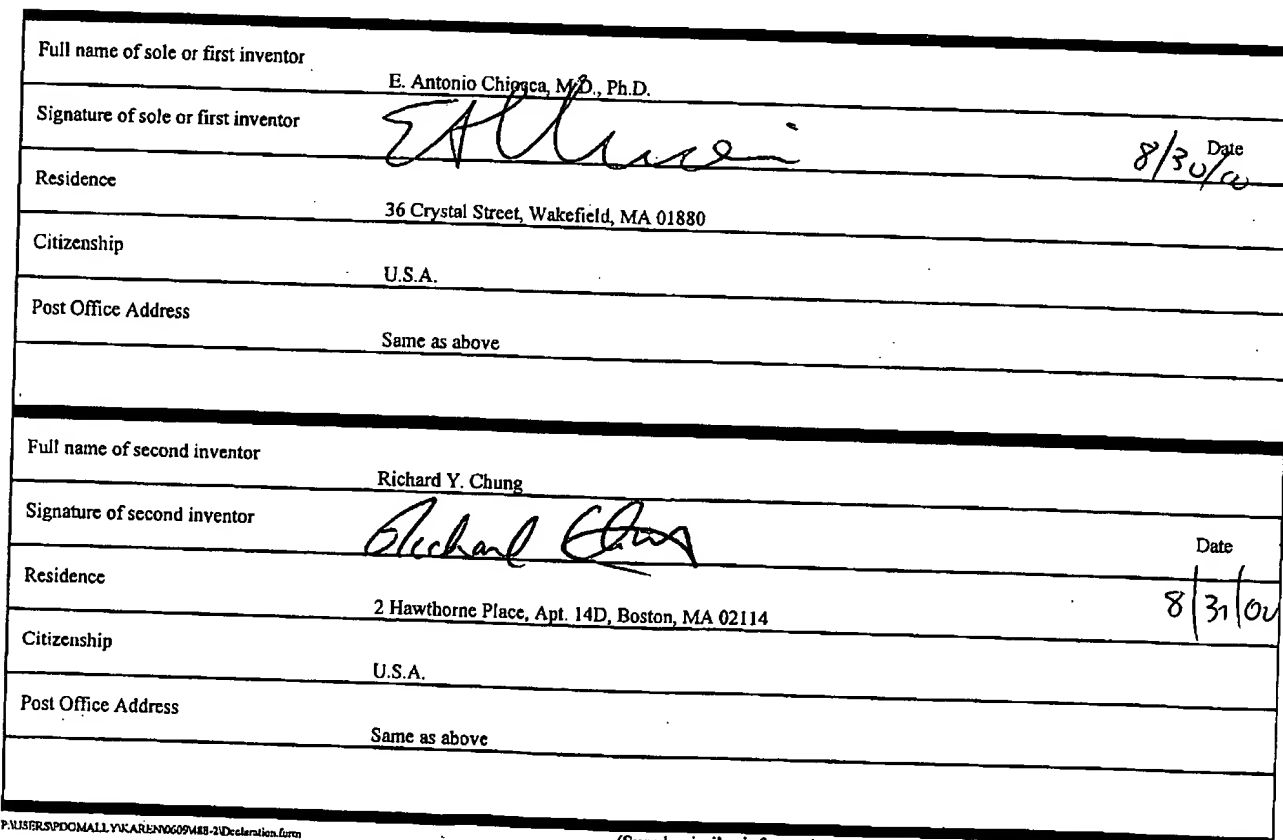 Full name of sole or first inventor
E. Antonio Chiocca, M.D., Ph.D.
Signature of sole or first inventor
Date
8/30/00
Residence
36 Crystal Street, Wakefield, MA 01880
Citizenship
U.S.A.
Post Office Address
Same as above
Full name of second inventor
Richard Y. Chung
Signature of second inventor
Richard Chung
Date
8/31/00
Residence
2 Hawthorne Place, Apt. 14D, Boston, MA 02114
Citizenship
U.S.A.
Post Office Address
Same as above
P:\USERS\PDOMALLY\KAREN\0609\488-2\Declaration.form